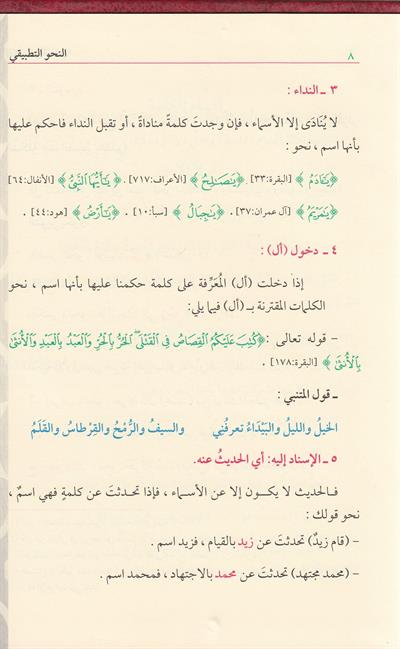 ٨ النحو التطبيقي
٣ ـ النداء :
لا يُنَادَى إلا الأسماء ، فإن وجدتَ كلمةً مناداةً ، أو تقبل النداء فاحكم عليها
بأنها اسم ، نحو :
﴿ يَـٰٓـَٔادَمُ ﴾ [البقرة:٣٣]. ﴿ يَـٰصَـٰلِحُ ﴾ [الأعراف:٧١٧]. ﴿ يَـٰٓأَيُّهَا ٱلنَّبِىُّ ﴾ [الأنفال:٦٤]
﴿ يَـٰمَرْيَمُ ﴾ [آل عمران:٣٧]. ﴿ يَـٰجِبَالُ ﴾ [سبأ:١٠] . ﴿ يَـٰٓأَرْضُ ﴾ [هود:٤٤] .
٤ ـ دخول (أل) :
إذا دخلت (أل) المُعَرِّفة على كلمة حكمنا عليها بأنها اسم ، نحو
الكلمات المقترنة بـ (أل) فيما يلي:
- قوله تعالى :﴿كُتِبَ عَلَيْكُمُ ٱلْقِصَاصُ فِى ٱلْقَتْلَى ۖ ٱلْحُرُّ بِٱلْحُرِّ وَٱلْعَبْدُ بِٱلْعَبْدِ وَٱلْأُنثَىٰ
بِٱلْأُنثَىٰ ﴾ [البقرة:١٧٨] .
ـ قول المتنبي :
الخيلُ والليلُ والبَيْدَاءُ تعرفُنِي والسيفُ والرُّمْحُ والقِرْطاسُ والقَلَمُ
٥ ـ الإسناد إليه: أي الحديثُ عنه.
فـالحديث لا يكـون إلا عن الأسماء ، فإذا تحدثتَ عن كلمةٍ فهي اسمٌ ،
نحو قولك :
- (قام زيدٌ) تحدثتَ عن زيد بالقيام ، فزيد اسم .
- (محمد مجتهد) تحدثتَ عن محمد بالاجتهاد ، فمحمد اسم .